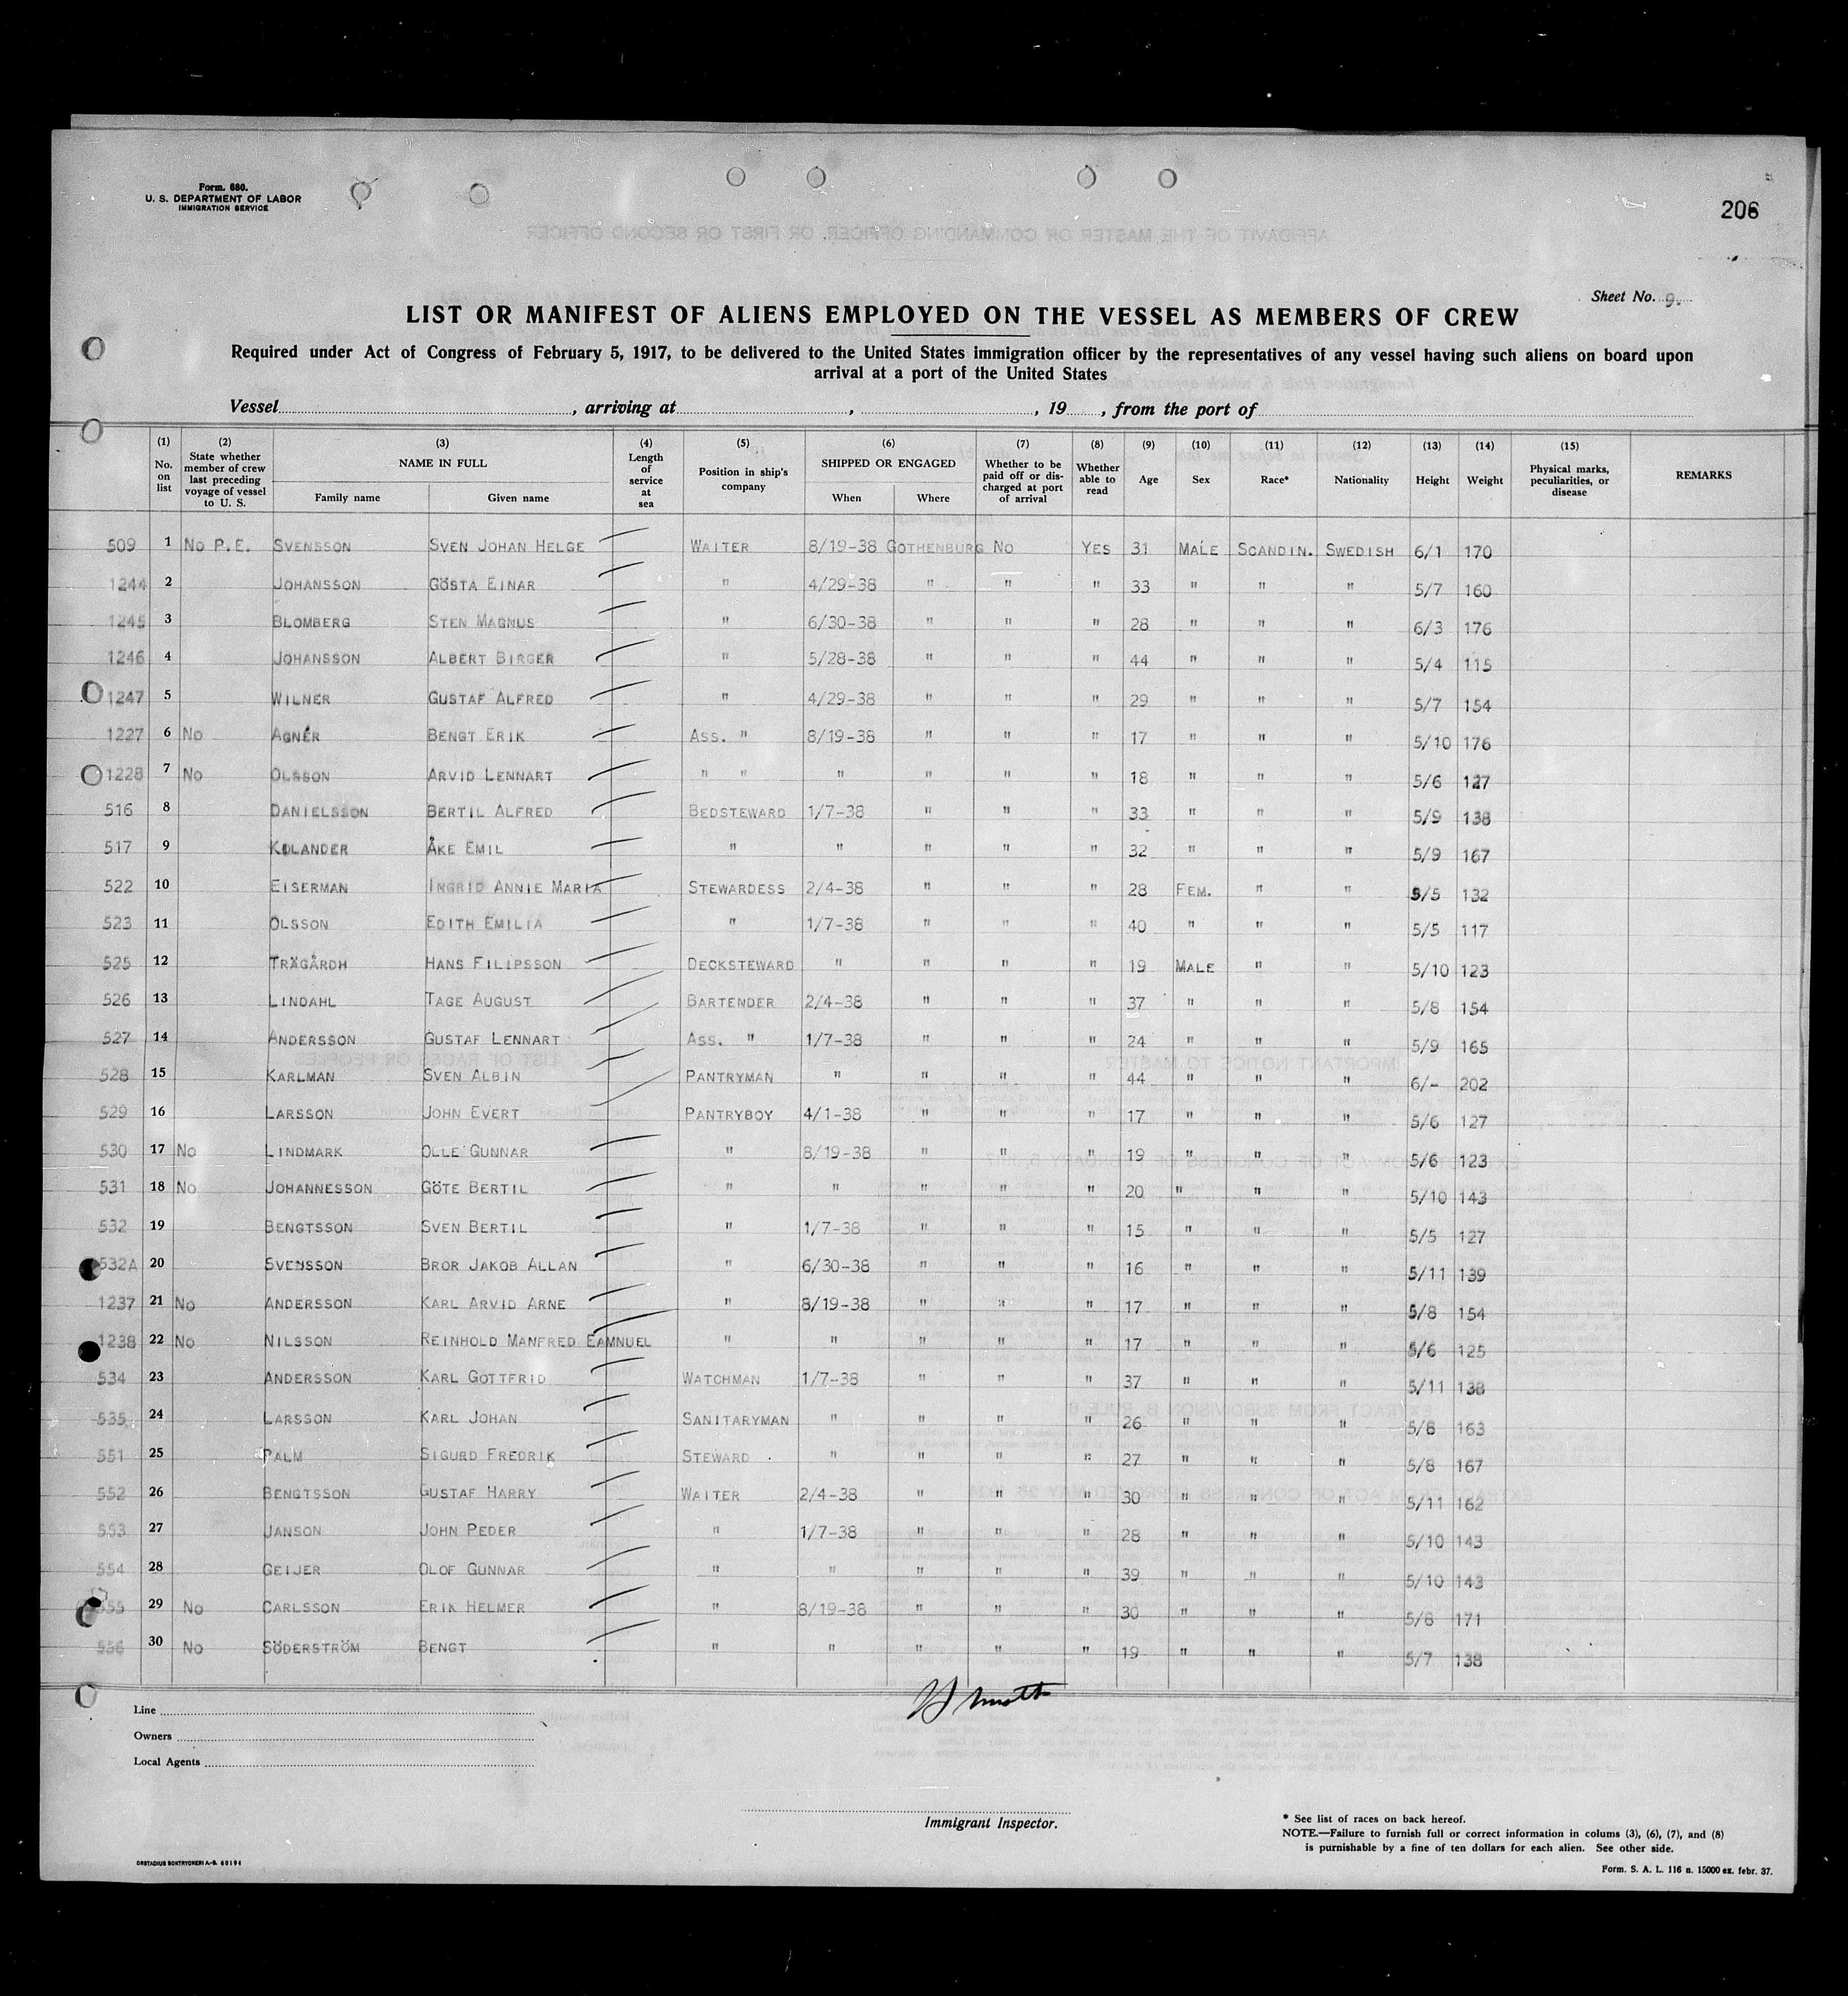 Form. 680.
U. S. DEPARTMENT OF LABOR
IMMIGRATION SERVICE
206
Sheet No. 9.
LIST OR MANIFEST OF ALIENS EMPLOYED ON THE VESSEL AS MEMBERS OF CREW
Required under Act of Congress of February 5, 1917, to be delivered to the United States immigration officer by the representatives of any vessel having such aliens on board upon
arrival at a port of the United States
Vessel , arriving at , , 19 , from the port of
(1) No. on list (2) State whether member of crew last preceding voyage of vessel to U. S. (3) NAME IN FULL Family name Given name (4) Length of service at sea (5) Position in ship's company (6) SHIPPED OR ENGAGED When Where (7) Whether to be paid off or discharged at port of arrival (8) Whether able to read (9) Age (10) Sex (11) Race* (12) Nationality (13) Height (14) Weight (15) Physical marks, peculiarities, or disease REMARKS
509 1 No P.E. SVENSSON SVEN JOHAN HELGE WAITER 8/19-38 GOTHENBURG NO YES 31 MALE SCANDIN. SWEDISH 6/1 170
1244 2 JOHANSSON GÖSTA EINAR " 4/29-38 " " " 33 " " " 5/7 160
1245 3 BLOMBERG STEN MAGNUS " 6/30-38 " " " 28 " " " 6/3 176
1246 4 JOHANSSON ALBERT BIRGER " 5/28-38 " " " 44 " " " 5/4 115
1247 5 WILNER GUSTAF ALFRED " 4/29-38 " " " 29 " " " 5/7 154
1227 6 No AGNÉR BENGT ERIK ASS. " 8/19-38 " " " 17 " " " 5/10 176
1228 7 No OLSSON ARVID LENNART " " " " " " 18 " " " 5/6 127
516 8 DANIELSSON BERTIL ALFRED BEDSTEWARD 1/7-38 " " " 33 " " " 5/9 138
517 9 KOLANDER ÅKE EMIL " " " " " 32 " " " 5/9 167
522 10 EISERMAN INGRID ANNIE MARIA STEWARDESS 2/4-38 " " " 28 FEM. " " 5/5 132
523 11 OLSSON EDITH EMILIA " 1/7-38 " " " 40 " " " 5/5 117
525 12 TRÄGÅRDH HANS FILIPSSON DECKSTEWARD " " " " 19 MALE " " 5/10 123
526 13 LINDAHL TAGE AUGUST BARTENDER 2/4-38 " " " 37 " " " 5/8 154
527 14 ANDERSSON GUSTAF LENNART ASS. " 1/7-38 " " " 24 " " " 5/9 165
528 15 KARLMAN SVEN ALBIN PANTRYMAN " " " " 44 " " " 6/- 202
529 16 LARSSON JOHN EVERT PANTRYBOY 4/1-38 " " " 17 " " " 5/6 127
530 17 No LINDMARK OLLE GUNNAR " 8/19-38 " " " 19 " " " 5/6 123
531 18 No JOHANNESSON GÖTE BERTIL " " " " " 20 " " " 5/10 143
532 19 BENGTSSON SVEN BERTIL " 1/7-38 " " " 15 " " " 5/5 127
532A 20 SVENSSON BROR JAKOB ALLAN " 6/30-38 " " " 16 " " " 5/11 139
1237 21 No ANDERSSON KARL ARVID ARNE " 8/19-38 " " " 17 " " " 5/8 154
1238 22 No NILSSON REINHOLD MANFRED EAMNUEL " " " " " 17 " " " 5/6 125
534 23 ANDERSSON KARL GOTTFRID WATCHMAN 1/7-38 " " " 37 " " " 5/11 138
535 24 LARSSON KARL JOHAN SANITARYMAN " " " " 26 " " " 5/8 163
551 25 PALM SIGURD FREDRIK STEWARD " " " " 27 " " " 5/8 167
552 26 BENGTSSON GUSTAF HARRY WAITER 2/4-38 " " " 30 " " " 5/11 162
553 27 JANSON JOHN PEDER " 1/7-38 " " " 28 " " " 5/10 143
554 28 GEIJER OLOF GUNNAR " " " " " 39 " " " 5/10 143
555 29 No CARLSSON ERIK HELMER " 8/19-38 " " " 30 " " " 5/8 171
556 30 No SÖDERSTRÖM BENGT " " " " " 19 " " " 5/7 138
Line
Owners
Local Agents
Immigrant Inspector.
* See list of races on back hereof.
NOTE.—Failure to furnish full or correct information in colums (3), (6), (7), and (8)
is purnishable by a fine of ten dollars for each alien. See other side.
ORSTADIUS BOKTRYCKERI A.-B. 60194
Form. S. A. L. 116 n. 15000 ex. febr. 37.